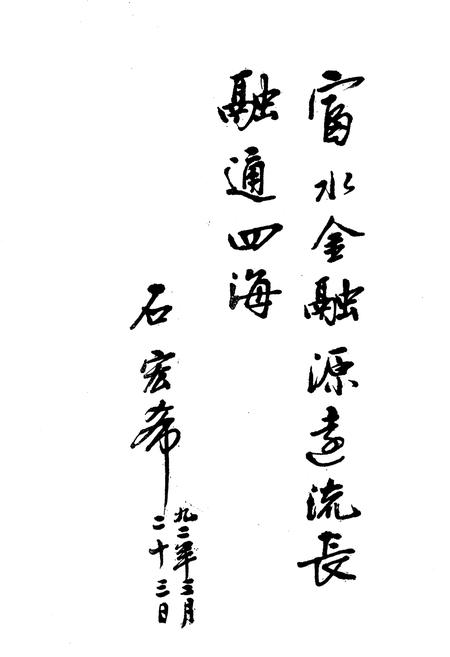 富水金融源遠流長
融通四海
石宏希
九二年三月
二十三日